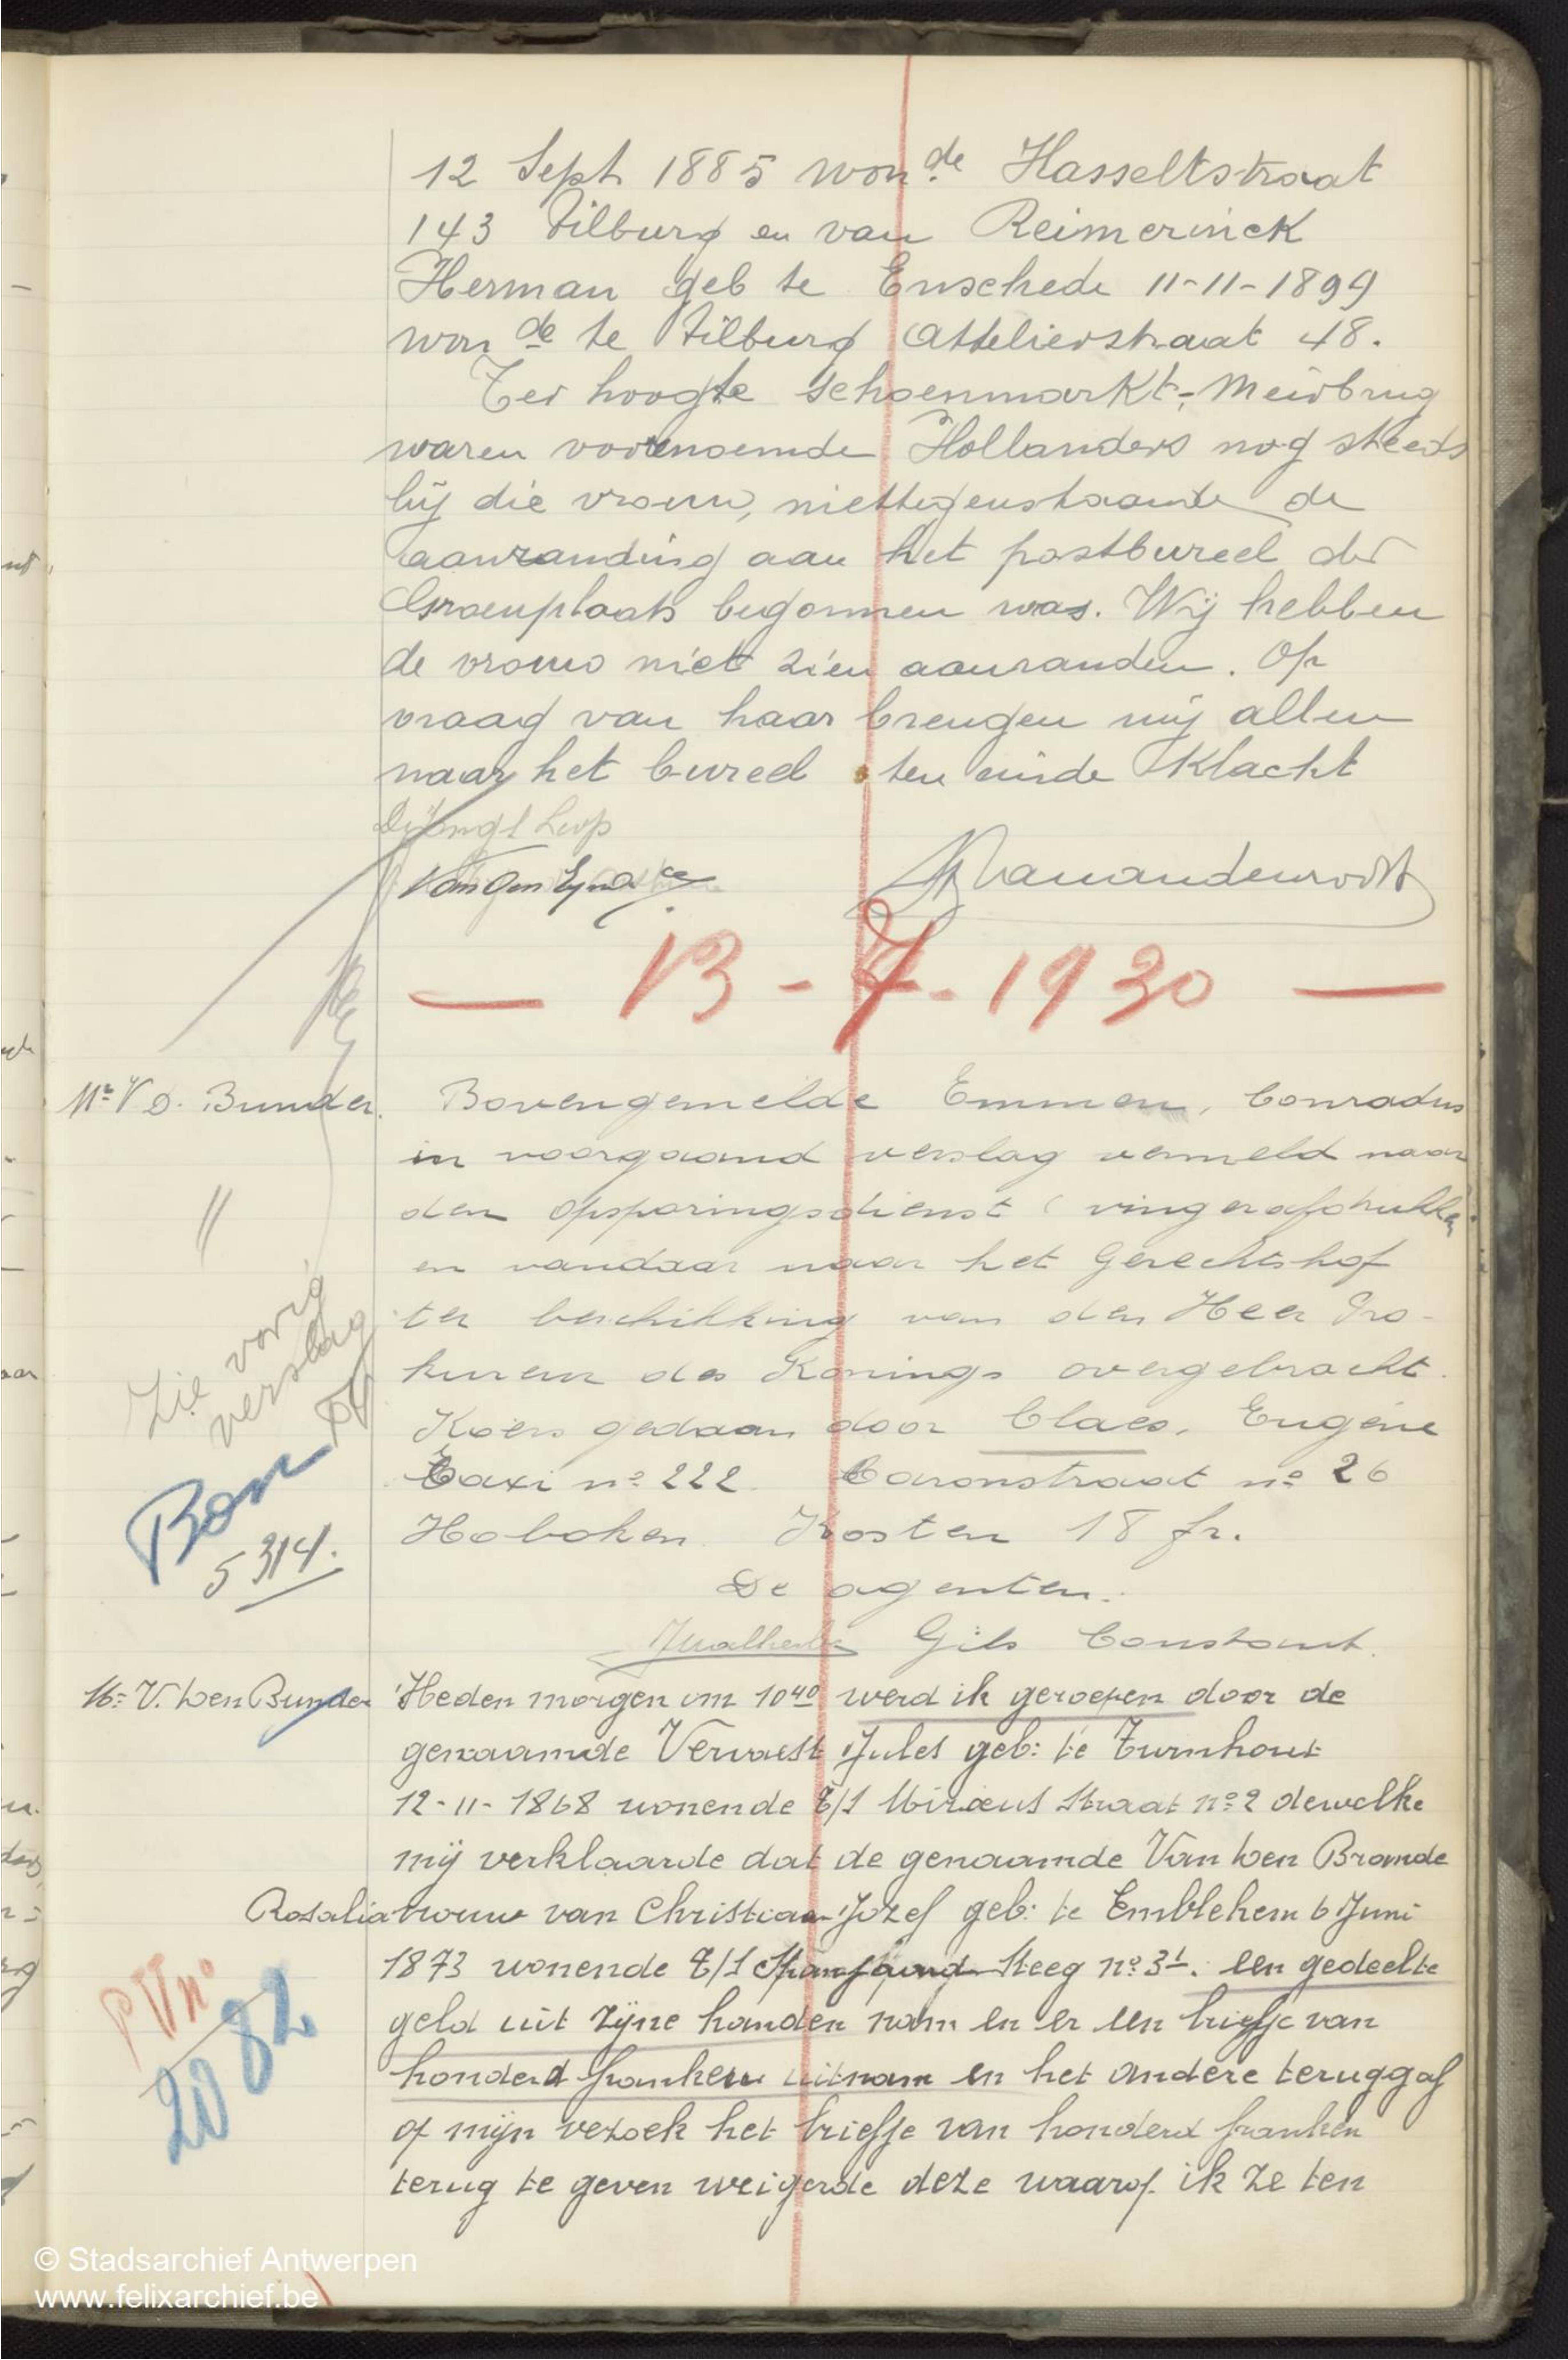 12 Sept 1885 won.de Hasseltstraat
143 Tilburg en van Reimerinck
Herman geb te Enschede 11-11-1899
won de te Tilburg Attelierstraat 48.
Ter hoogte schoenmarkt-, Meirbrug
waren voornoemde Hollanders nog steeds
bij die vrouw, niettegenstaande de
aanranding aan het postbureel der
Groenplaats begonnen was. Wij hebben
de vrouw niet zien aanranden. Op
vraag van haar brengen wij allen
naar het bureel ten einde Klacht
— 13-7-1930 —
Mr V D. Bunder.
Bovengemelde Emmen, Conradus
in voorgaand verslag vermeld naar
den opsporingsdienst ( vingerafdrukken
en vandaar naar het Gerechtshof
ter beschikking van den Heer Pro-
kureur des Konings overgebracht.
Koers gedaan door Claes, Eugène
Taxi no 222 Caronstraat no 26
Hoboken Kosten 18 fr.
De agenten.
Gils Constant.
//
Zie vorig
verslag
Bon
5314.
Mr V. den Bunder
Heden morgen om 10 40 werd ik geroepen door de
genaamde Vervaest Jules geb: te Turnhout
12-11-1868 wonende T/S Miraeus Straat no 2 dewelke
mij verklaarde dat de genaamde Van den Brande
Rosalia vrouw van Christiaan Jozef geb: te Emblehem 6 Juni
1873 wonende T/S Steeg no 31. een gedeelte
geld uit zijne handen nam en er een briefje van
honderd franken uitnam en het andere teruggaf
op mijn verzoek het briefje van honderd franken
terug te geven weigerde deze waarop ik ze ten
PV no
2082
© Stadsarchief Antwerpen
www.felixarchief.be